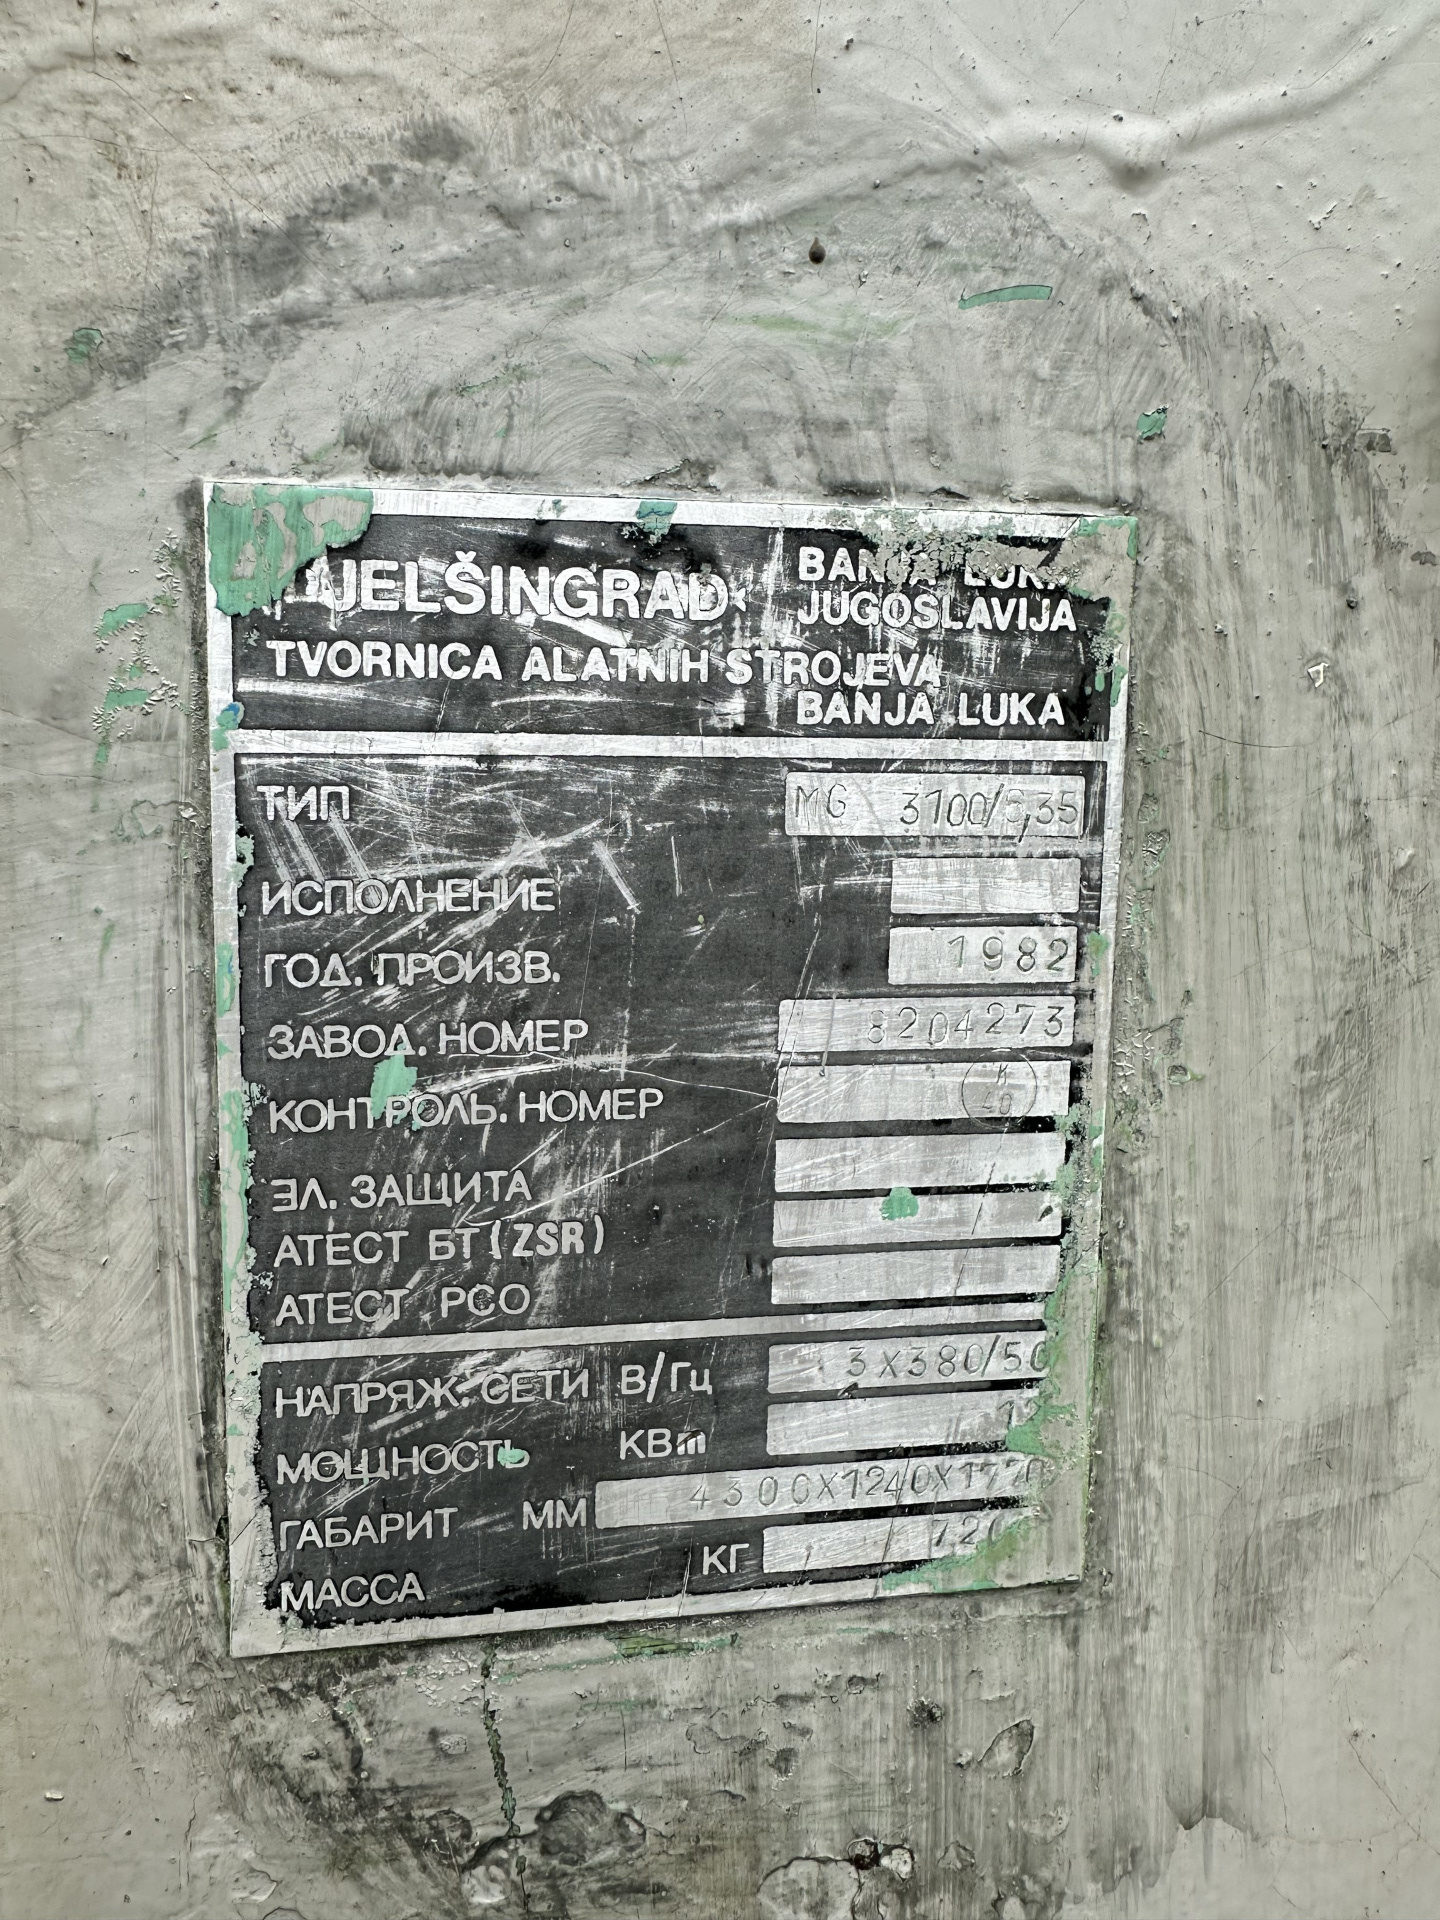 JELŠINGRAD
BANJA LUKA
JUGOSLAVIJA
TVORNICA ALATNIH STROJEVA
BANJA LUKA
ТИП MG 3100/6,35
ИСПОЛНЕНИЕ
ГОД. ПРОИЗВ. 1982
ЗАВОД. НОМЕР 8204273
КОНТРОЛЬ. НОМЕР K 40
ЭЛ. ЗАЩИТА
АТЕСТ БТ (ZSR)
АТЕСТ РСО
НАПРЯЖ. СЕТИ В/Гц 3X380/50
МОЩНОСТЬ КВт
ГАБАРИТ ММ 4300X1240X1720
МАССА КГ